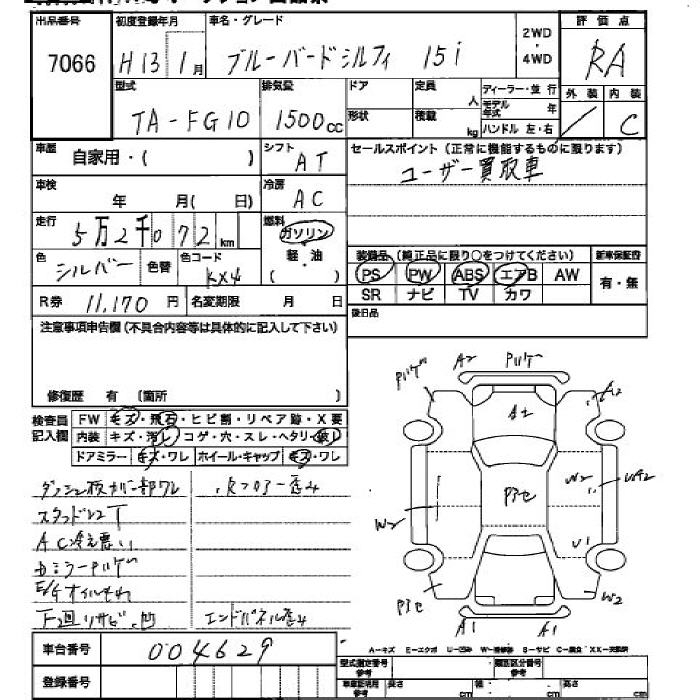 出品番号 初度登録年月 車名・グレード 2WD・4WD 評価点
7066 H13年1月 ブルーバードシルフィ 15i RA
型式 排気量 ドア 定員 人 ディーラー・並行 外装 内装
TA-FG10 1500cc 形状 積載 kg モデル年式 年 ハンドル 左・右 / C
車歴 自家用・( ) シフト AT セールスポイント(正常に機能するものに限ります)
ユーザー買取車
車検 年 月( 日) 冷房 AC
走行 5万2千072km 燃料 ガソリン 軽・油 ( )
色 シルバー 色替 色コード KX4
装備品(純正品に限り○をつけてください) 新車保証書
PS PW ABS エアB AW 有・無
SR ナビ TV カワ
R券 11,170円 名変期限 月 日
後日品
注意事項申告欄(不具合内容等は具体的に記入して下さい)
修復歴 有 〔箇所 〕
検査員記入欄 FW キズ・飛石・ヒビ割・リペア跡・X要
内装 キズ・汚レ・コゲ・穴・スレ・ヘタリ・破レ
ドアミラー キズ・ワレ ホイール・キャップ キズ・ワレ
スタッドレスT
AC冷え悪い
E/Gオイルもれ
下回りサビ、凹 エンドパネル歪み
A2
A2
W2
W2
U1
W2
A1 A1
車台番号 004629
A-キズ E-エクボ U-凹み W-補修跡 S-サビ C-腐食 XX-交換済
登録番号 型式指定番号 類別区分番号
長さ cm 幅 cm 高さ cm